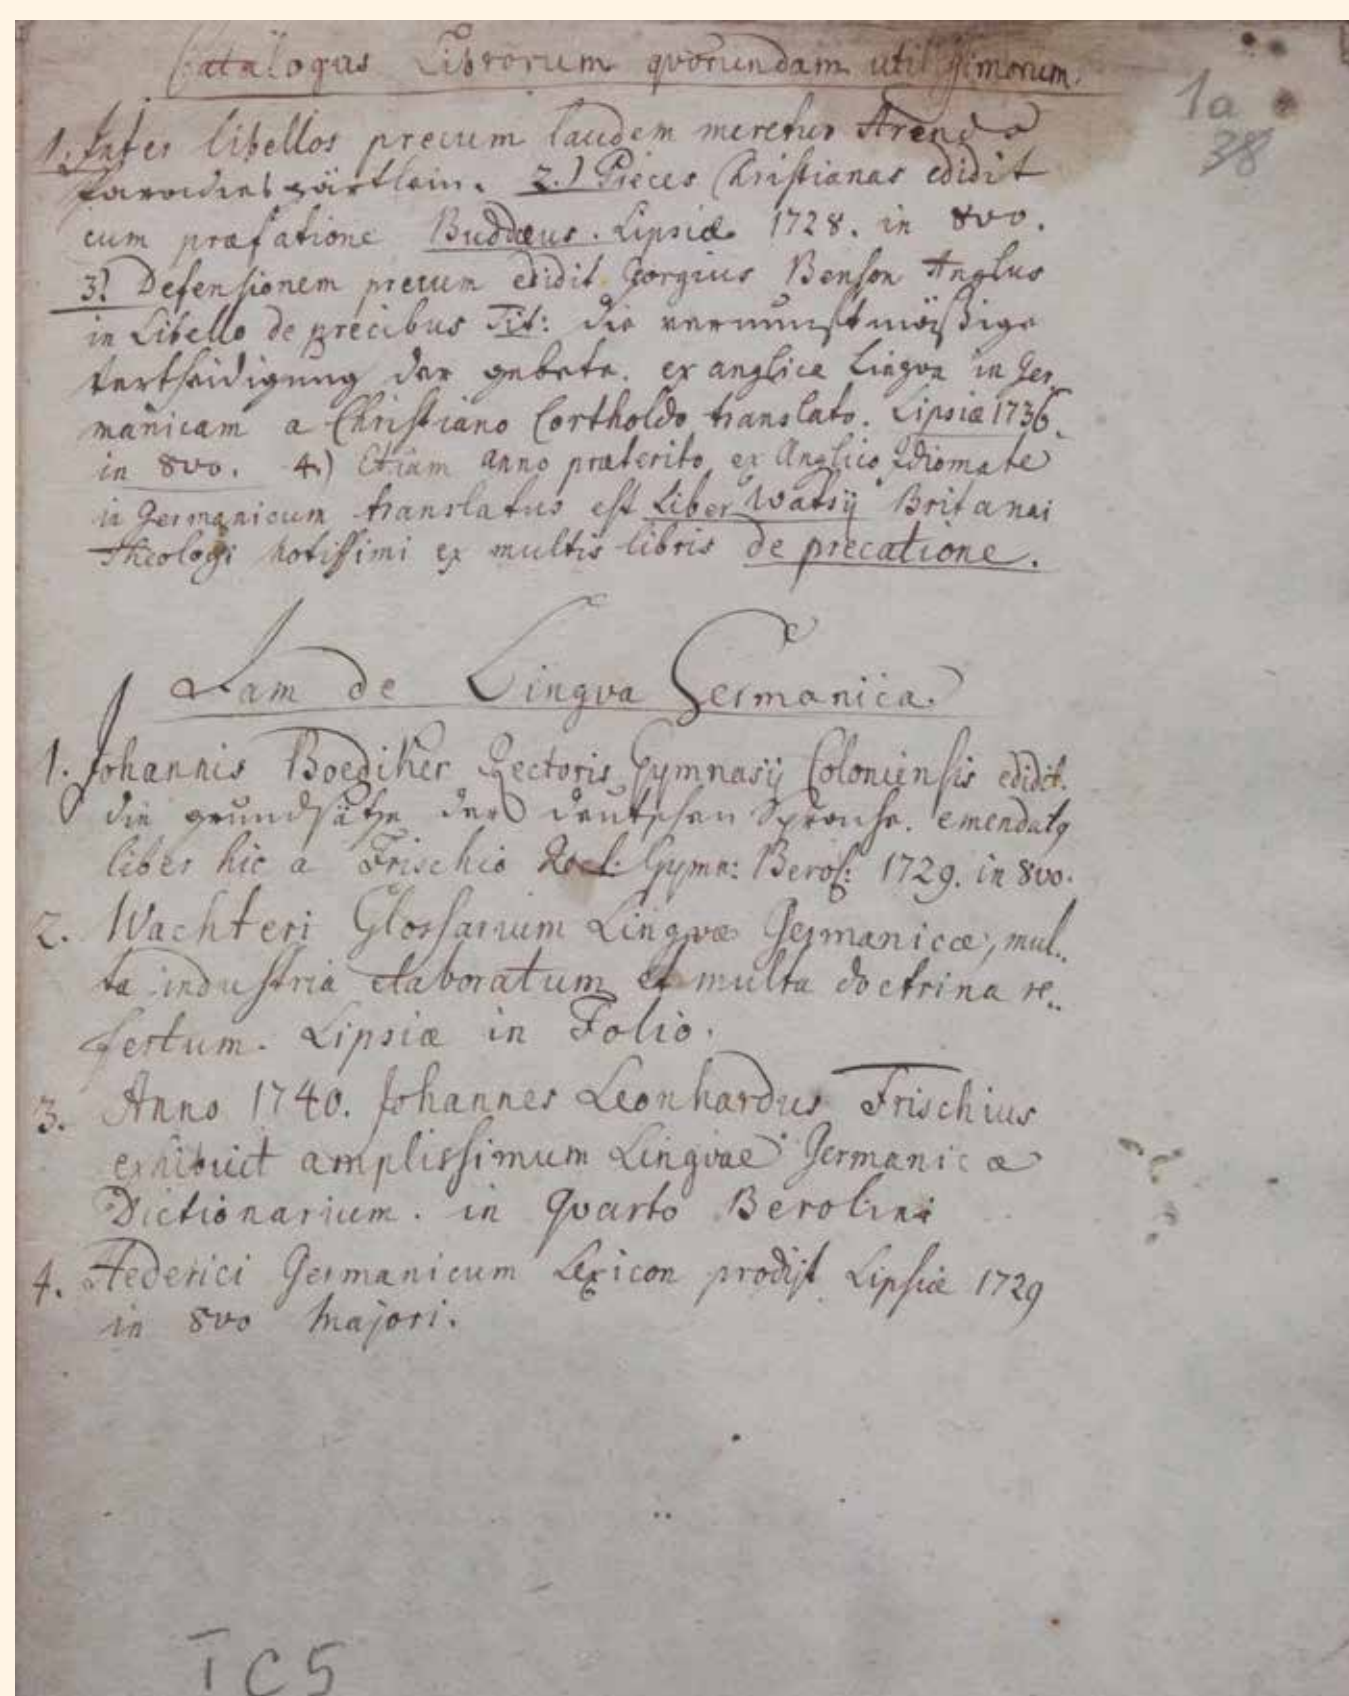 Catalogus Librorum quorundam utilissimorum.
1a
38
1. Inter libellos precum laudem meretur Arends
paradiesgärtlein. 2.) Preces Christianas edidit
cum præfatione Buddæus. Lipsiæ 1728. in 8vo.
3) Defensionem precum edidit Georgius Benson Anglus
in Libello de precibus Tit: die vernunftmäßige
Vertheidigung der gebete. ex anglica Lingva in Ger„
manicam a Christiano Cortholdo translato. Lipsiæ 1736.
in 8vo. 4.) Etiam anno præterito ex Anglico Idiomate
in Germanicum translatus est Liber Watsij Britanni
Theologi notissimi ex multis libris de precatione.
Jam de Lingva Germanica.
1. Johannis Boediker Rectoris Gymnasij Coloniensis edidit.
die grundsätze der deutschen Sprache. emendatq
liber hic a Frischio Rect: Gymn: Berol: 1729. in 8vo.
2. Wachteri Glossarium Lingvæ Germanicæ, mul„
ta industria elaboratum et multa doctrina re„
fertum. Lipsiæ in Folio.
3. Anno 1740. Johannes Leonhardus Frischius
exhibuit amplissimum Lingvae Germanicæ
Dictionarium. in Qvarto Berolini
4. Hederici Germanicum Lexicon prodijt Lipsiæ 1729
in 8vo majori.
TC5